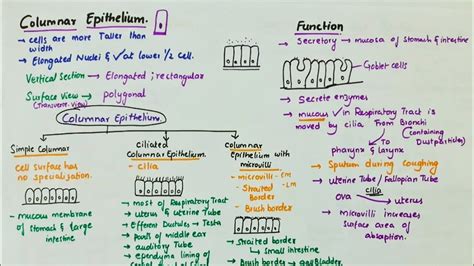 Columnar Epithelium.
→ cells are more Taller than
width
→ Elongated Nuclei & ✓ at lower 1/2 cell.
Vertical Section → Elongated ; rectangular
Surface View → polygonal
(Transverse.View)
Columnar Epithelium.
Simple Columnar
Cell Surface has
no specialisation.
→ mucous membrane
of Stomach & large
intestine
Ciliated
Columnar Epithelium.
- cilia
→ most of Respiratory Tract
→ uterus & uterine Tube
→ Efferent Ductules - Testis
→ parts of middle ear
→ auditory Tube
→ ependyma lining of
Columnar
Epithelium with
microvilli
- microvilli - EM
- Striated
Border - LM
- Brush border
→ Striated border
↳ Small intestine
→ Brush Border → Gall Bladder
Function
→ Secretory → mucosa of Stomach & intestine
Goblet cells
→ Secrete enzymes
→ mucous ✓ in Respiratory Tract is
moved by cilia From Bronchi
(Containing
Dust particles)
To
pharynx & larynx
→ Sputum during coughing
→ uterine Tube / Fallopian Tube
cilia
OVA → uterus
→ microvilli increases
Surface area of
absorption.